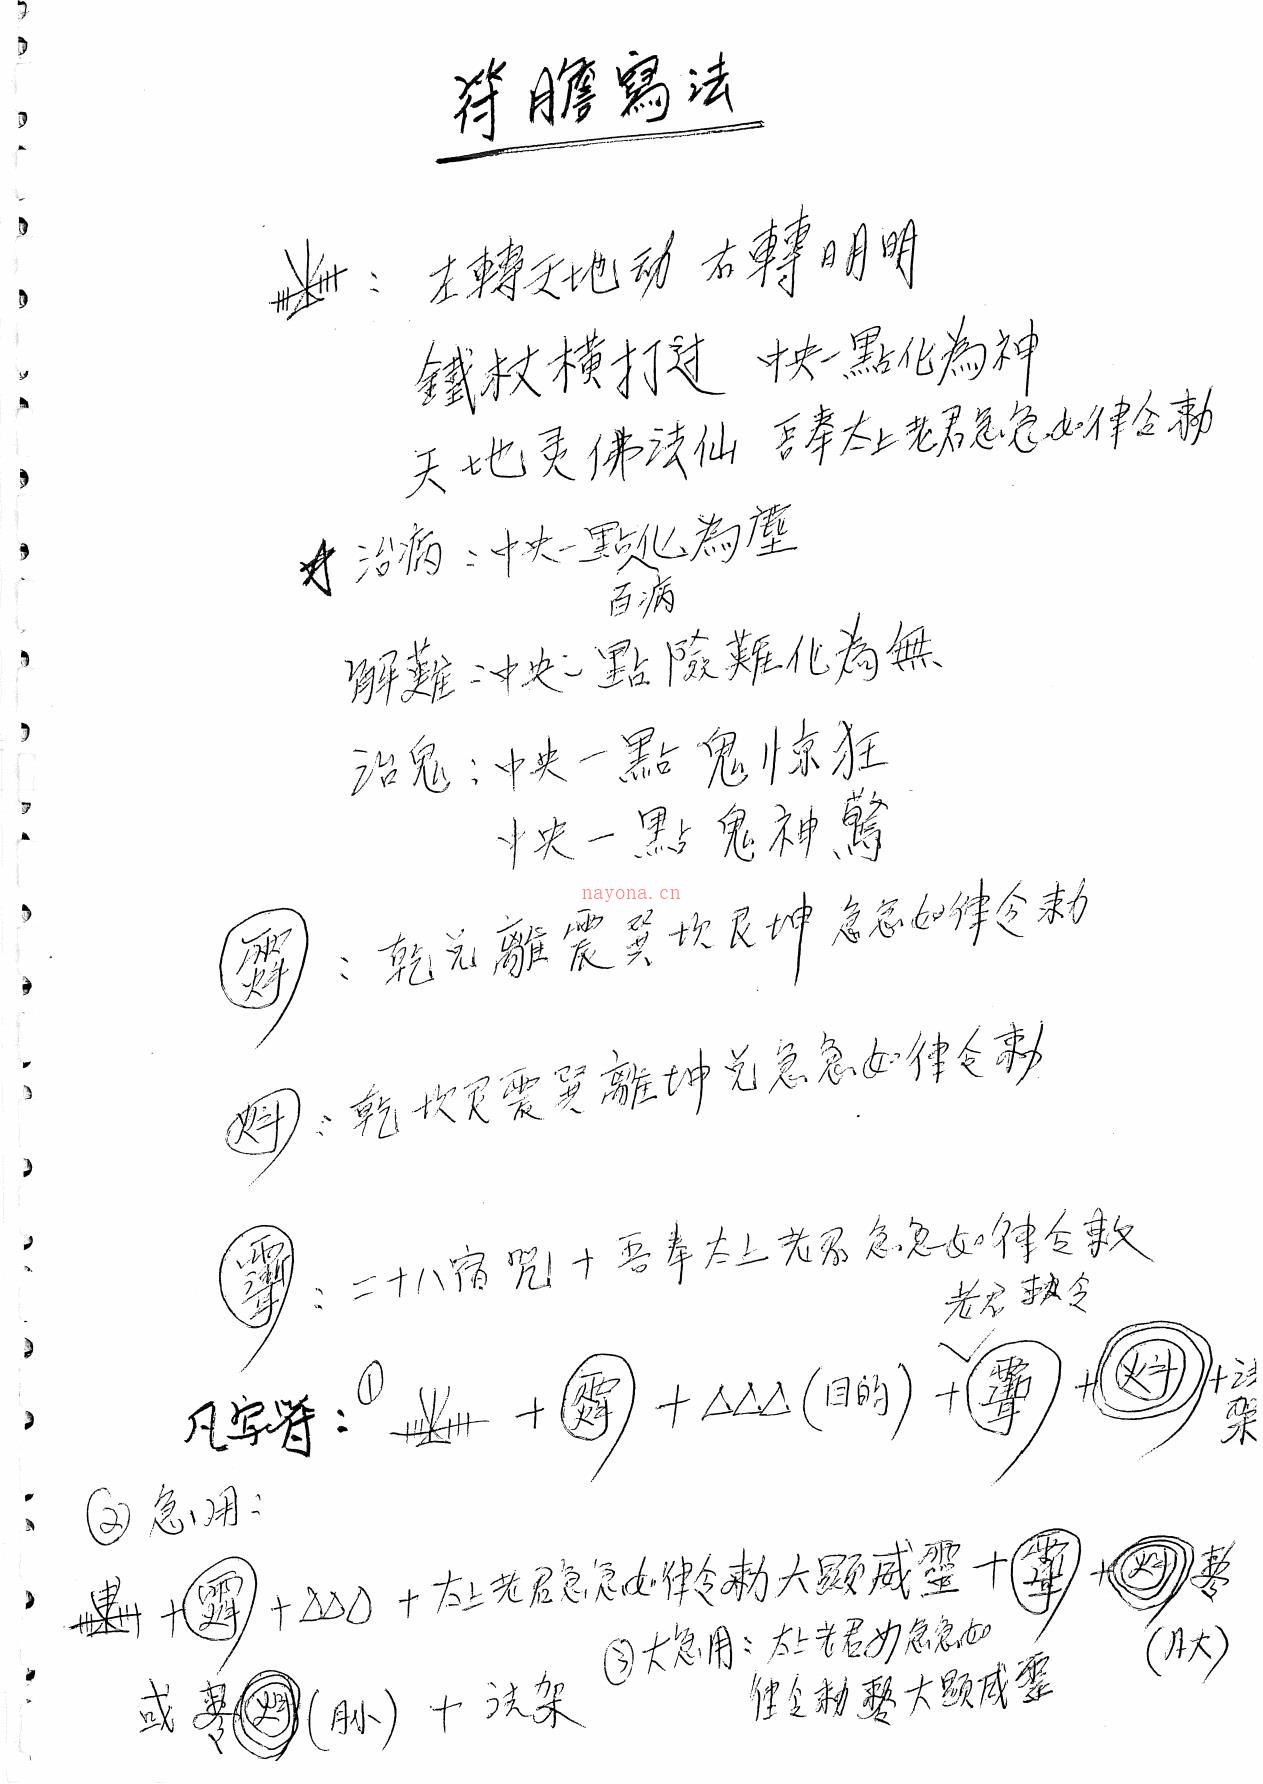 符膽寫法
：左轉天地动 右轉日月明
鐵杖橫打过 中央一點化為神
天地灵佛法仙 吾奉太上老君急急如律令勅
★治病：中央一點化為塵
百病
解難：中央一點險難化為無
治鬼：中央一點鬼惊狂
中央一點鬼神驚
nayona.cn
：乾兌離震巽坎艮坤急急如律令勅
：乾坎艮震巽離坤兌急急如律令勅
：二十八宿咒＋吾奉太上老君急急如律令敕
老君敕令
凡字符：① ＋ ＋△△△(目的)＋ ＋ ＋法架
②急用：
＋ ＋△△△＋太上老君急急如律令勅大顯威靈＋ ＋
(月大)
③大急用：太上老君如急急如
律令勅 大顯威靈
或 (月小)＋法架